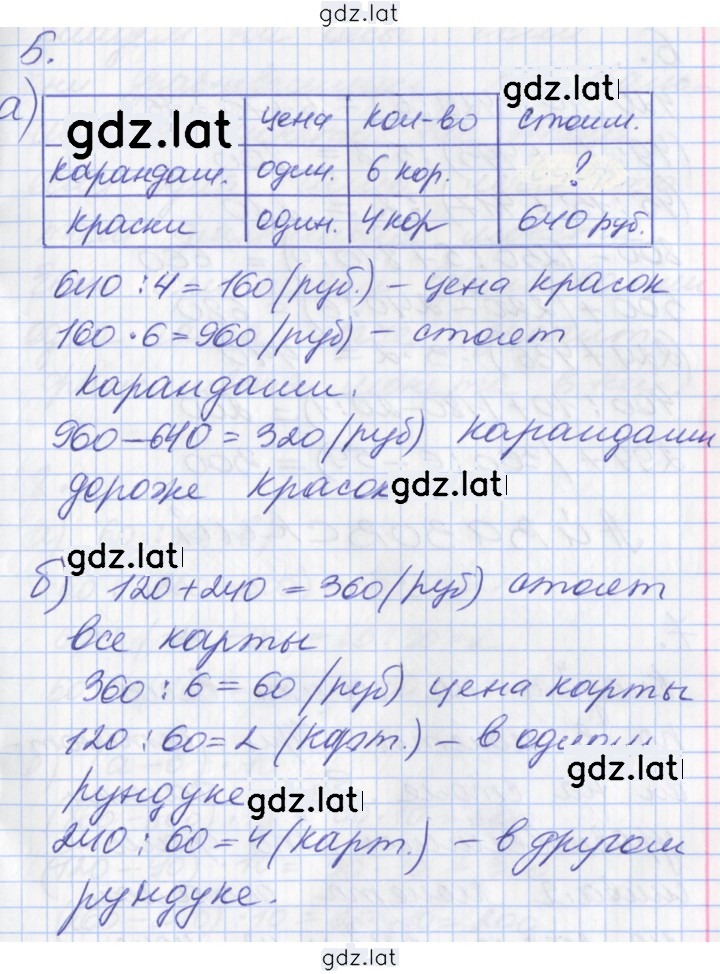 gdz.lat
5.
gdz.lat
а) цена кол-во стоим.
gdz.lat
карандаш. один. 6 кор. ?
краски один. 4 кор 640 руб.
640 : 4 = 160 (руб.) – цена красок
160 · 6 = 960 (руб) – стоят
карандаши.
960 – 640 = 320 (руб) карандаши
дороже красок gdz.lat
gdz.lat
б) 120 + 240 = 360 (руб) стоят
все карты
360 : 6 = 60 (руб) цена карты
120 : 60 = 2 (карт.) – в
gdz.lat
рундуке gdz.lat
240 : 60 = 4 (карт.) – в другом
рундуке.
gdz.lat